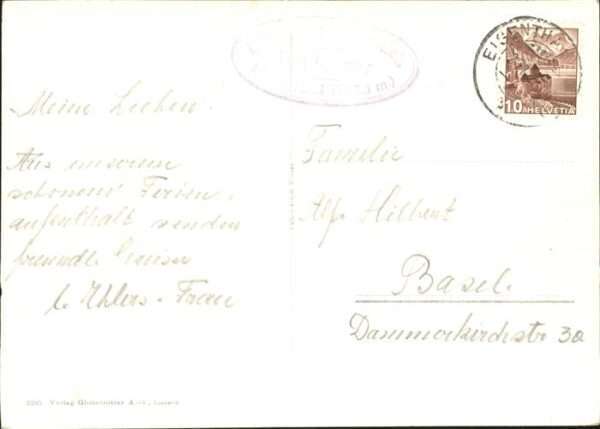 Meine Lieben!
Aus unserem
schönen Ferien-
aufenthalt senden
freundl. Grüsse
Ehlers - Frau
Familie
Alf. Hilbert
Basel.
Dammerkirchstr 30
EISENTHA
10 HELVETIA
Verlag Globetrotter A.-G., Luzern